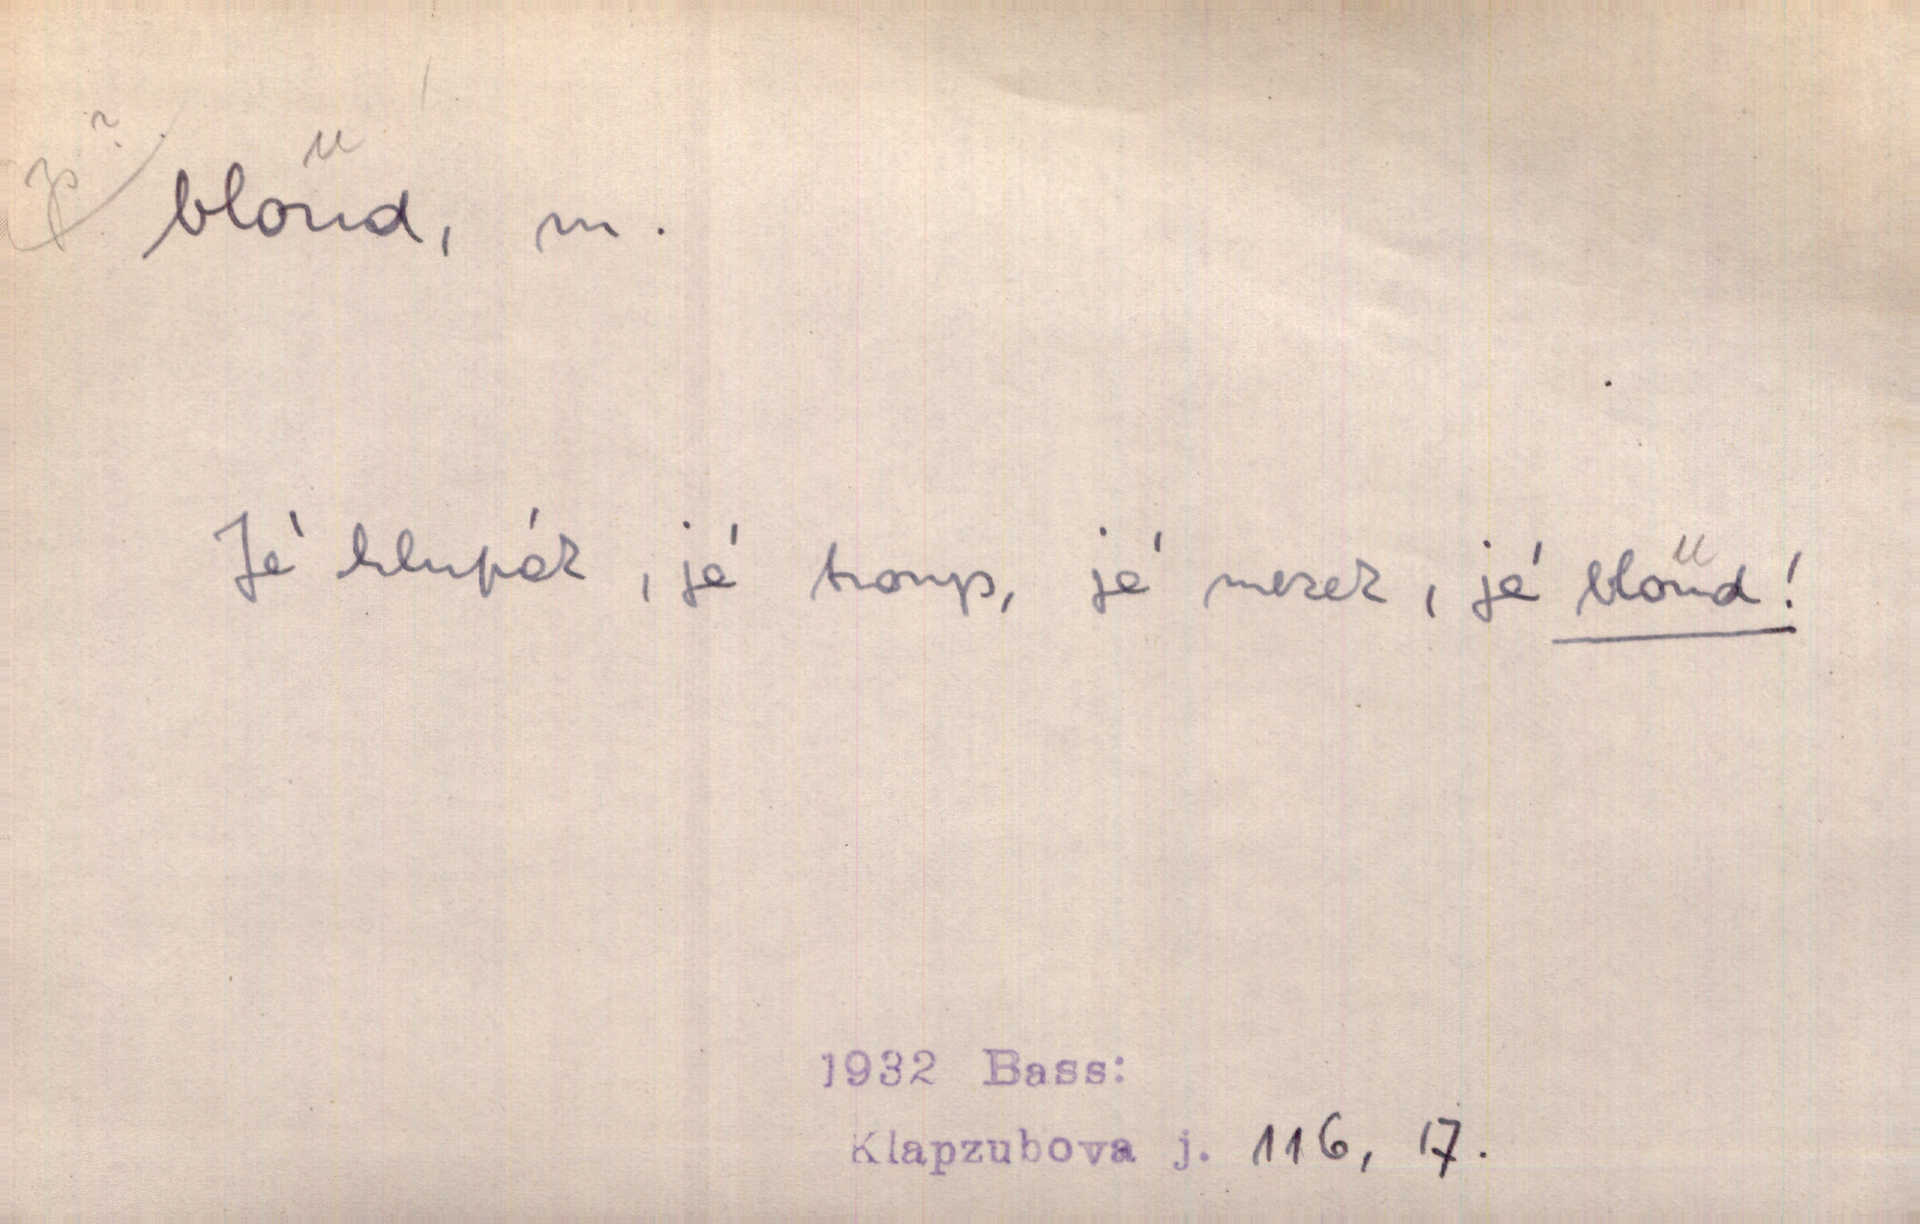 bloud, m.
Já hlupák, já troup, já mezek, já bloud!
1932 Bass:
Klapzubova j. 116, 17.